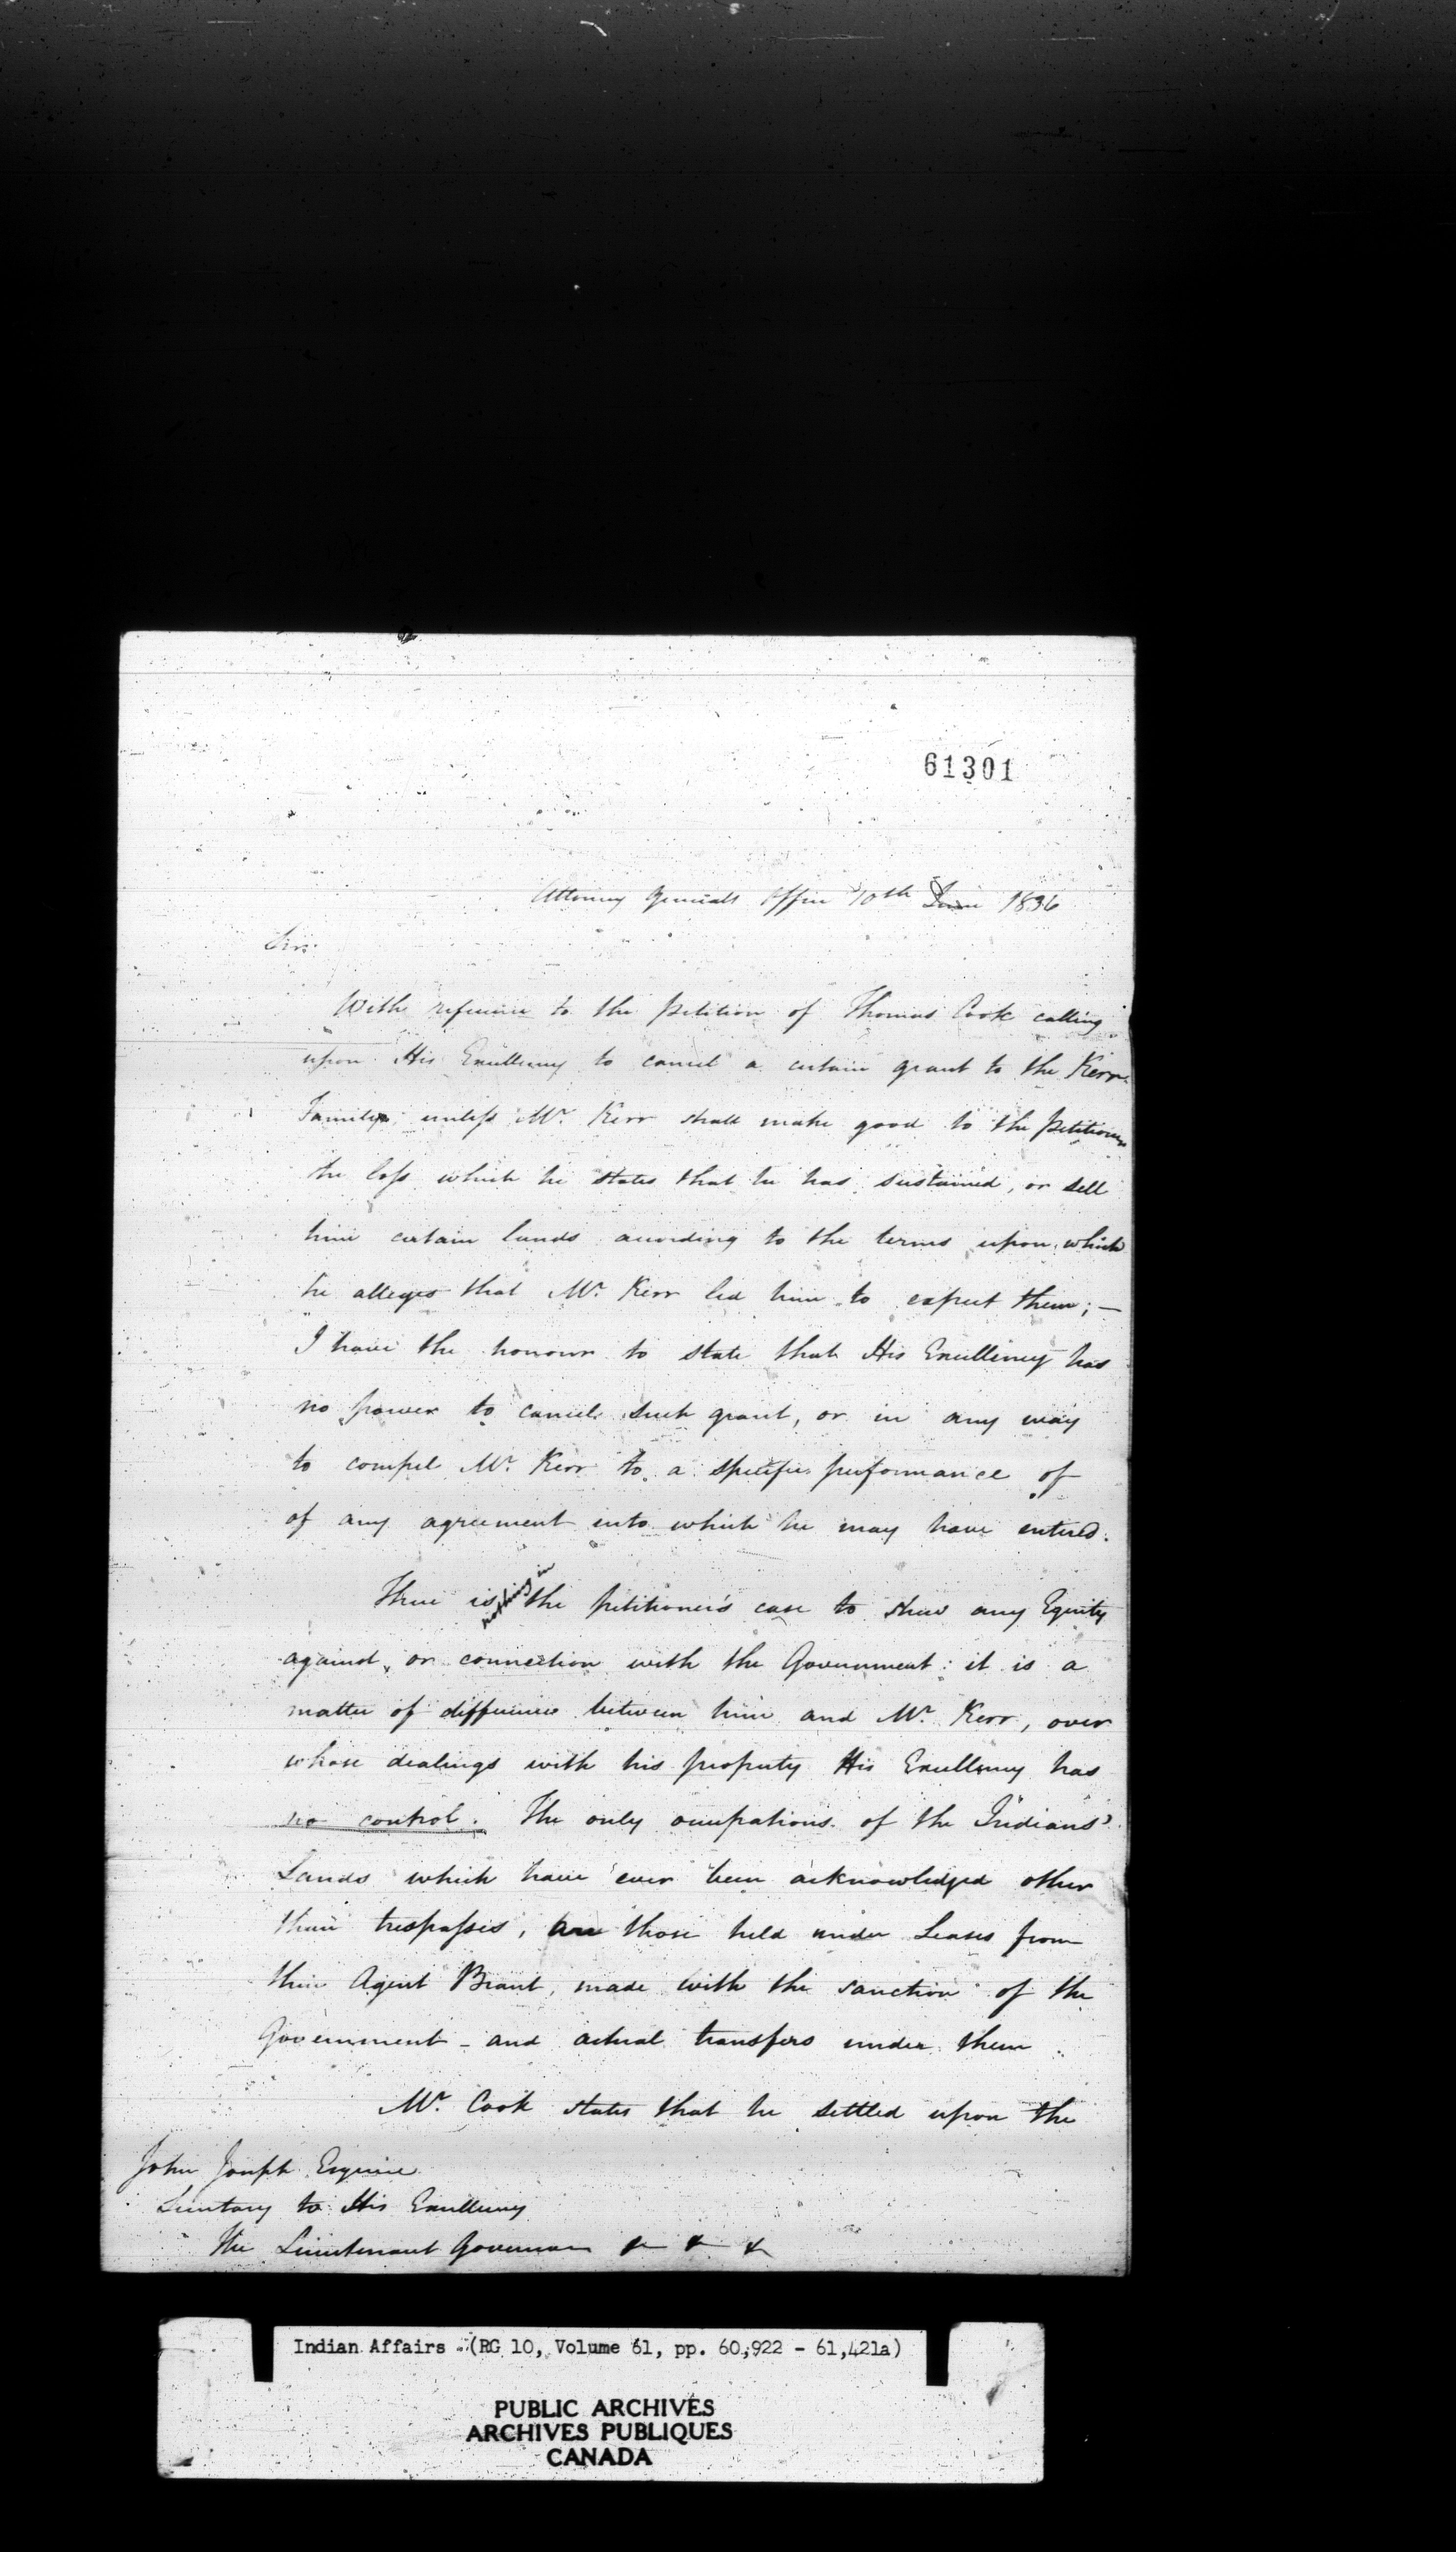 61301
Attorney Generals Office 10th June 1836
Sir.
With reference to the petition of Thomas Cook calling
upon His Excellency to cancel a certain grant to the Kerr
Family, unless Mr. Kerr shall make good to the petitioner
the loss which he states that he has sustained, or sell
him certain lands according to the terms upon which
he alleges that Mr. Kerr led him to expect them; —
I have the honour to state that His Excellency has
no power to cancel such grant, or in any way
to compel Mr. Kerr to a specific performance of
of any agreement into which he may have entered.
There is nothing in the petitioner's case to shew any Equity
against, or connection with the Government: it is a
matter of difference between him and Mr. Kerr, over
whose dealings with his property His Excellency has
no control. The only occupations of the Indians'
Lands which have ever been acknowledged other
than trespasses, are those held under Leases from
their Agent Brant, made with the sanction of the
Government - and actual transfers under them.
Mr. Cook states that he settled upon the
John Joseph Esquire
Secretary to His Excellency
The Lieutenant Governor
Indian Affairs (RG 10, Volume 61, pp. 60,922 - 61,421a)
PUBLIC ARCHIVES
ARCHIVES PUBLIQUES
CANADA